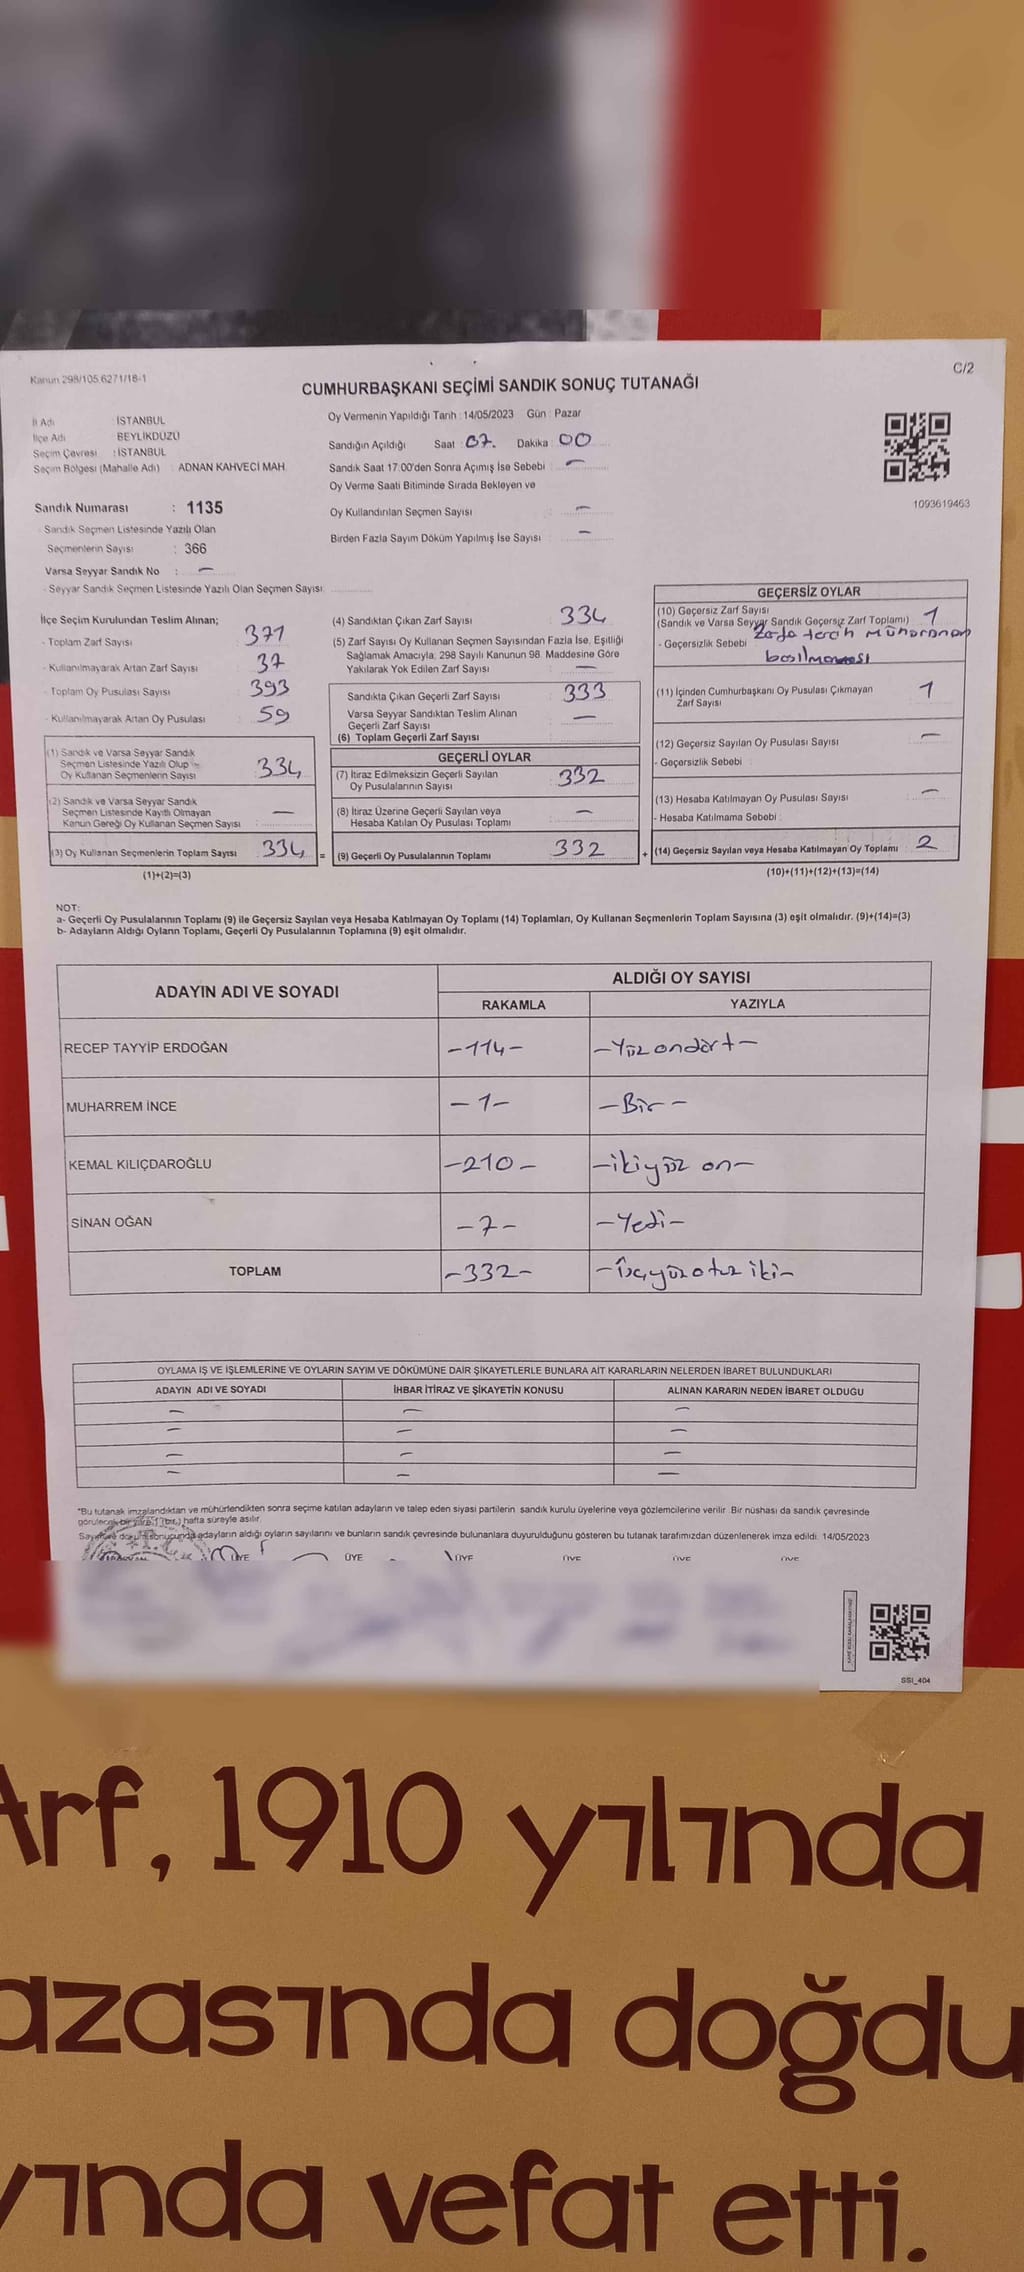 Kanun 298/105 6271/18-1
C/2
CUMHURBAŞKANI SEÇİMİ SANDIK SONUÇ TUTANAĞI
İl Adı : İSTANBUL
İlçe Adı BEYLİKDÜZÜ
Seçim Çevresi : İSTANBUL
Seçim Bölgesi (Mahalle Adı) : ADNAN KAHVECİ MAH.
Sandık Numarası : 1135
- Sandık Seçmen Listesinde Yazılı Olan
Seçmenlerin Sayısı : 366
Varsa Seyyar Sandık No : –
- Seyyar Sandık Seçmen Listesinde Yazılı Olan Seçmen Sayısı:
Oy Vermenin Yapıldığı Tarih : 14/05/2023 Gün : Pazar
Sandığın Açıldığı Saat : 07. Dakika : 00
Sandık Saat 17:00'den Sonra Açımış İse Sebebi : –
Oy Verme Saati Bitiminde Sırada Bekleyen ve
Oy Kullandırılan Seçmen Sayısı : –
Birden Fazla Sayım Döküm Yapılmış İse Sayısı : –
1093619463
İlçe Seçim Kurulundan Teslim Alınan;
- Toplam Zarf Sayısı : 371
- Kullanılmayarak Artan Zarf Sayısı : 37
- Toplam Oy Pusulası Sayısı : 393
- Kullanılmayarak Artan Oy Pusulası : 59
(1) Sandık ve Varsa Seyyar Sandık
Seçmen Listesinde Yazılı Olup
Oy Kullanan Seçmenlerin Sayısı : 334
(2) Sandık ve Varsa Seyyar Sandık
Seçmen Listesinde Kayıtlı Olmayan
Kanun Gereği Oy Kullanan Seçmen Sayısı : –
(3) Oy Kullanan Seçmenlerin Toplam Sayısı : 334 =
(1)+(2)=(3)
(4) Sandıktan Çıkan Zarf Sayısı : 334
(5) Zarf Sayısı Oy Kullanan Seçmen Sayısından Fazla İse, Eşitliği
Sağlamak Amacıyla, 298 Sayılı Kanunun 98. Maddesine Göre
Yakılarak Yok Edilen Zarf Sayısı : –
Sandıkta Çıkan Geçerli Zarf Sayısı : 333
Varsa Seyyar Sandıktan Teslim Alınan
Geçerli Zarf Sayısı : –
(6) Toplam Geçerli Zarf Sayısı :
GEÇERLİ OYLAR
(7) İtiraz Edilmeksizin Geçerli Sayılan
Oy Pusulasının Sayısı : 332
(8) İtiraz Üzerine Geçerli Sayılan veya
Hesaba Katılan Oy Pusulası Toplamı : –
(9) Geçerli Oy Pusulalarının Toplamı : 332 +
GEÇERSİZ OYLAR
(10) Geçersiz Zarf Sayısı
(Sandık ve Varsa Seyyar Sandık Geçersiz Zarf Toplamı) : 1
- Geçersizlik Sebebi : Zarfa tercih mührünün
basılmaması
(11) İçinden Cumhurbaşkanı Oy Pusulası Çıkmayan
Zarf Sayısı : 1
(12) Geçersiz Sayılan Oy Pusulası Sayısı : –
- Geçersizlik Sebebi :
(13) Hesaba Katılmayan Oy Pusulası Sayısı : –
- Hesaba Katılmama Sebebi :
(14) Geçersiz Sayılan veya Hesaba Katılmayan Oy Toplamı : 2
(10)+(11)+(12)+(13)=(14)
NOT:
a- Geçerli Oy Pusulalarının Toplamı (9) ile Geçersiz Sayılan veya Hesaba Katılmayan Oy Toplamı (14) Toplamları, Oy Kullanan Seçmenlerin Toplam Sayısına (3) eşit olmalıdır. (9)+(14)=(3)
b- Adayların Aldığı Oyların Toplamı, Geçerli Oy Pusulalarının Toplamına (9) eşit olmalıdır.
ADAYIN ADI VE SOYADI ALDIĞI OY SAYISI
RAKAMLA YAZIYLA
RECEP TAYYİP ERDOĞAN –114– –Yüz ondört–
MUHARREM İNCE –1– –Bir–
KEMAL KILIÇDAROĞLU –210– –ikiyüz on–
SİNAN OĞAN –7– –Yedi–
TOPLAM –332– –üçyüzotuz iki–
OYLAMA İŞ VE İŞLEMLERİNE VE OYLARIN SAYIM VE DÖKÜMÜNE DAİR ŞİKAYETLERLE BUNLARA AİT KARARLARIN NELERDEN İBARET BULUNDUKLARI
ADAYIN ADI VE SOYADI İHBAR İTİRAZ VE ŞİKAYETİN KONUSU ALINAN KARARIN NEDEN İBARET OLDUĞU
– – –
– – –
– – –
– – –
*Bu tutanak imzalandıktan ve mühürlendikten sonra seçime katılan adayların ve talep eden siyasi partilerin sandık kurulu üyelerine veya gözlemcilerine verilir. Bir nüshası da sandık çevresinde
görülecek bir yere 1 (bir) hafta süreyle asılır.
Sayım ve döküm sonucunda adayların aldığı oyların sayılarını ve bunların sandık çevresinde bulunanlara duyurulduğunu gösteren bu tutanak tarafımızdan düzenlenerek imza edildi. 14/05/2023
ÜYE ÜYE ÜYE ÜYE ÜYE ÜYE
SSI_404
Arf, 1910 yılında
azasında doğdu
yında vefat etti.